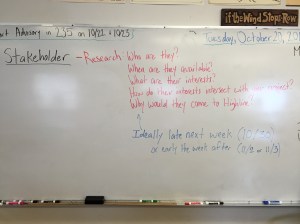 Advisory in 255 on 10/22 + 10/23
if the Wind Stops Row
Tuesday, October 27, 20
Stakeholder - Research: Who are they?
When are they available?
What are their interests?
How do their interests intersect with
Why would they come to
Ideally late next week
or early the week after (11/2 or 11/3)